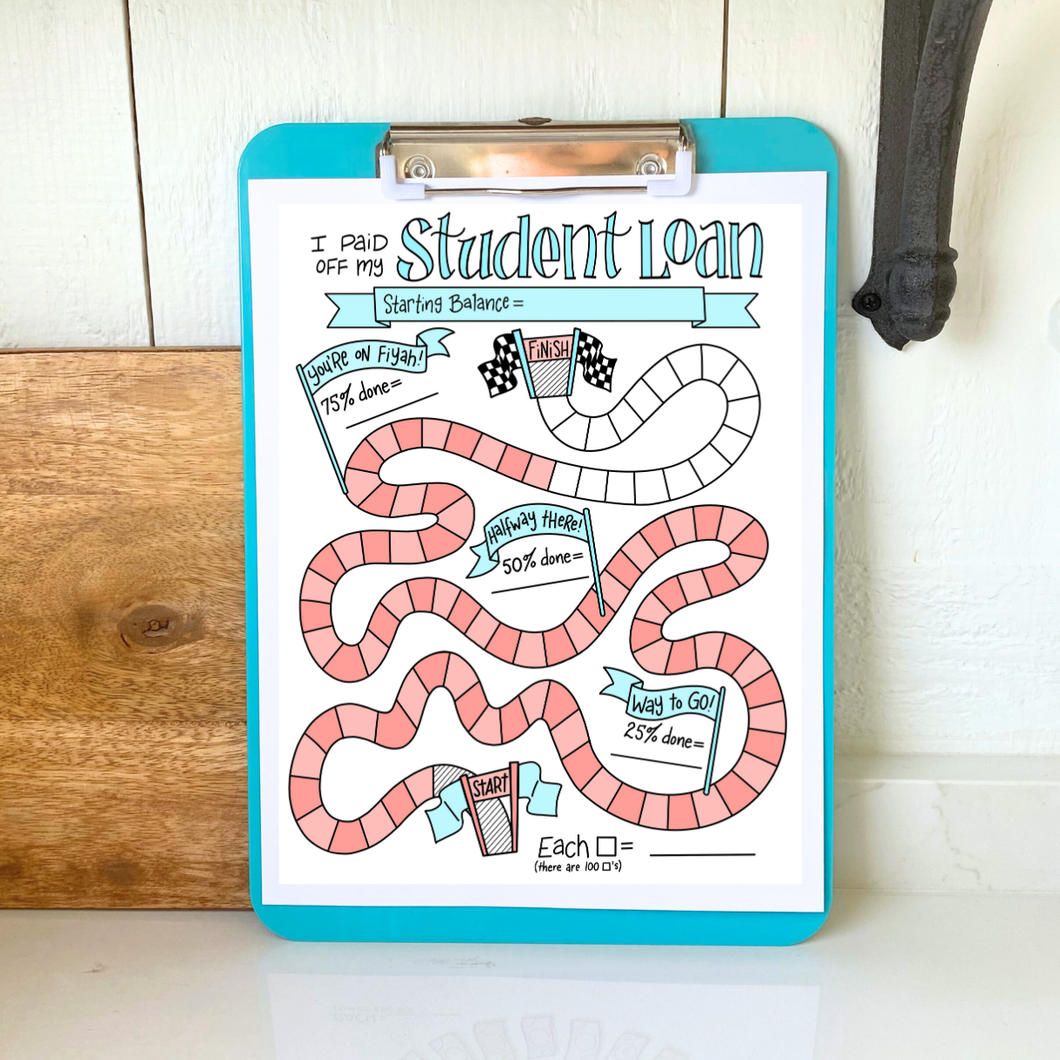 I PAID
OFF MY
Student Loan
Starting Balance =
You're on Fiyah!
75% done=
FINISH
Halfway There!
50% done=
Way to Go!
25% done=
START
Each □=
(there are 100 □'s)